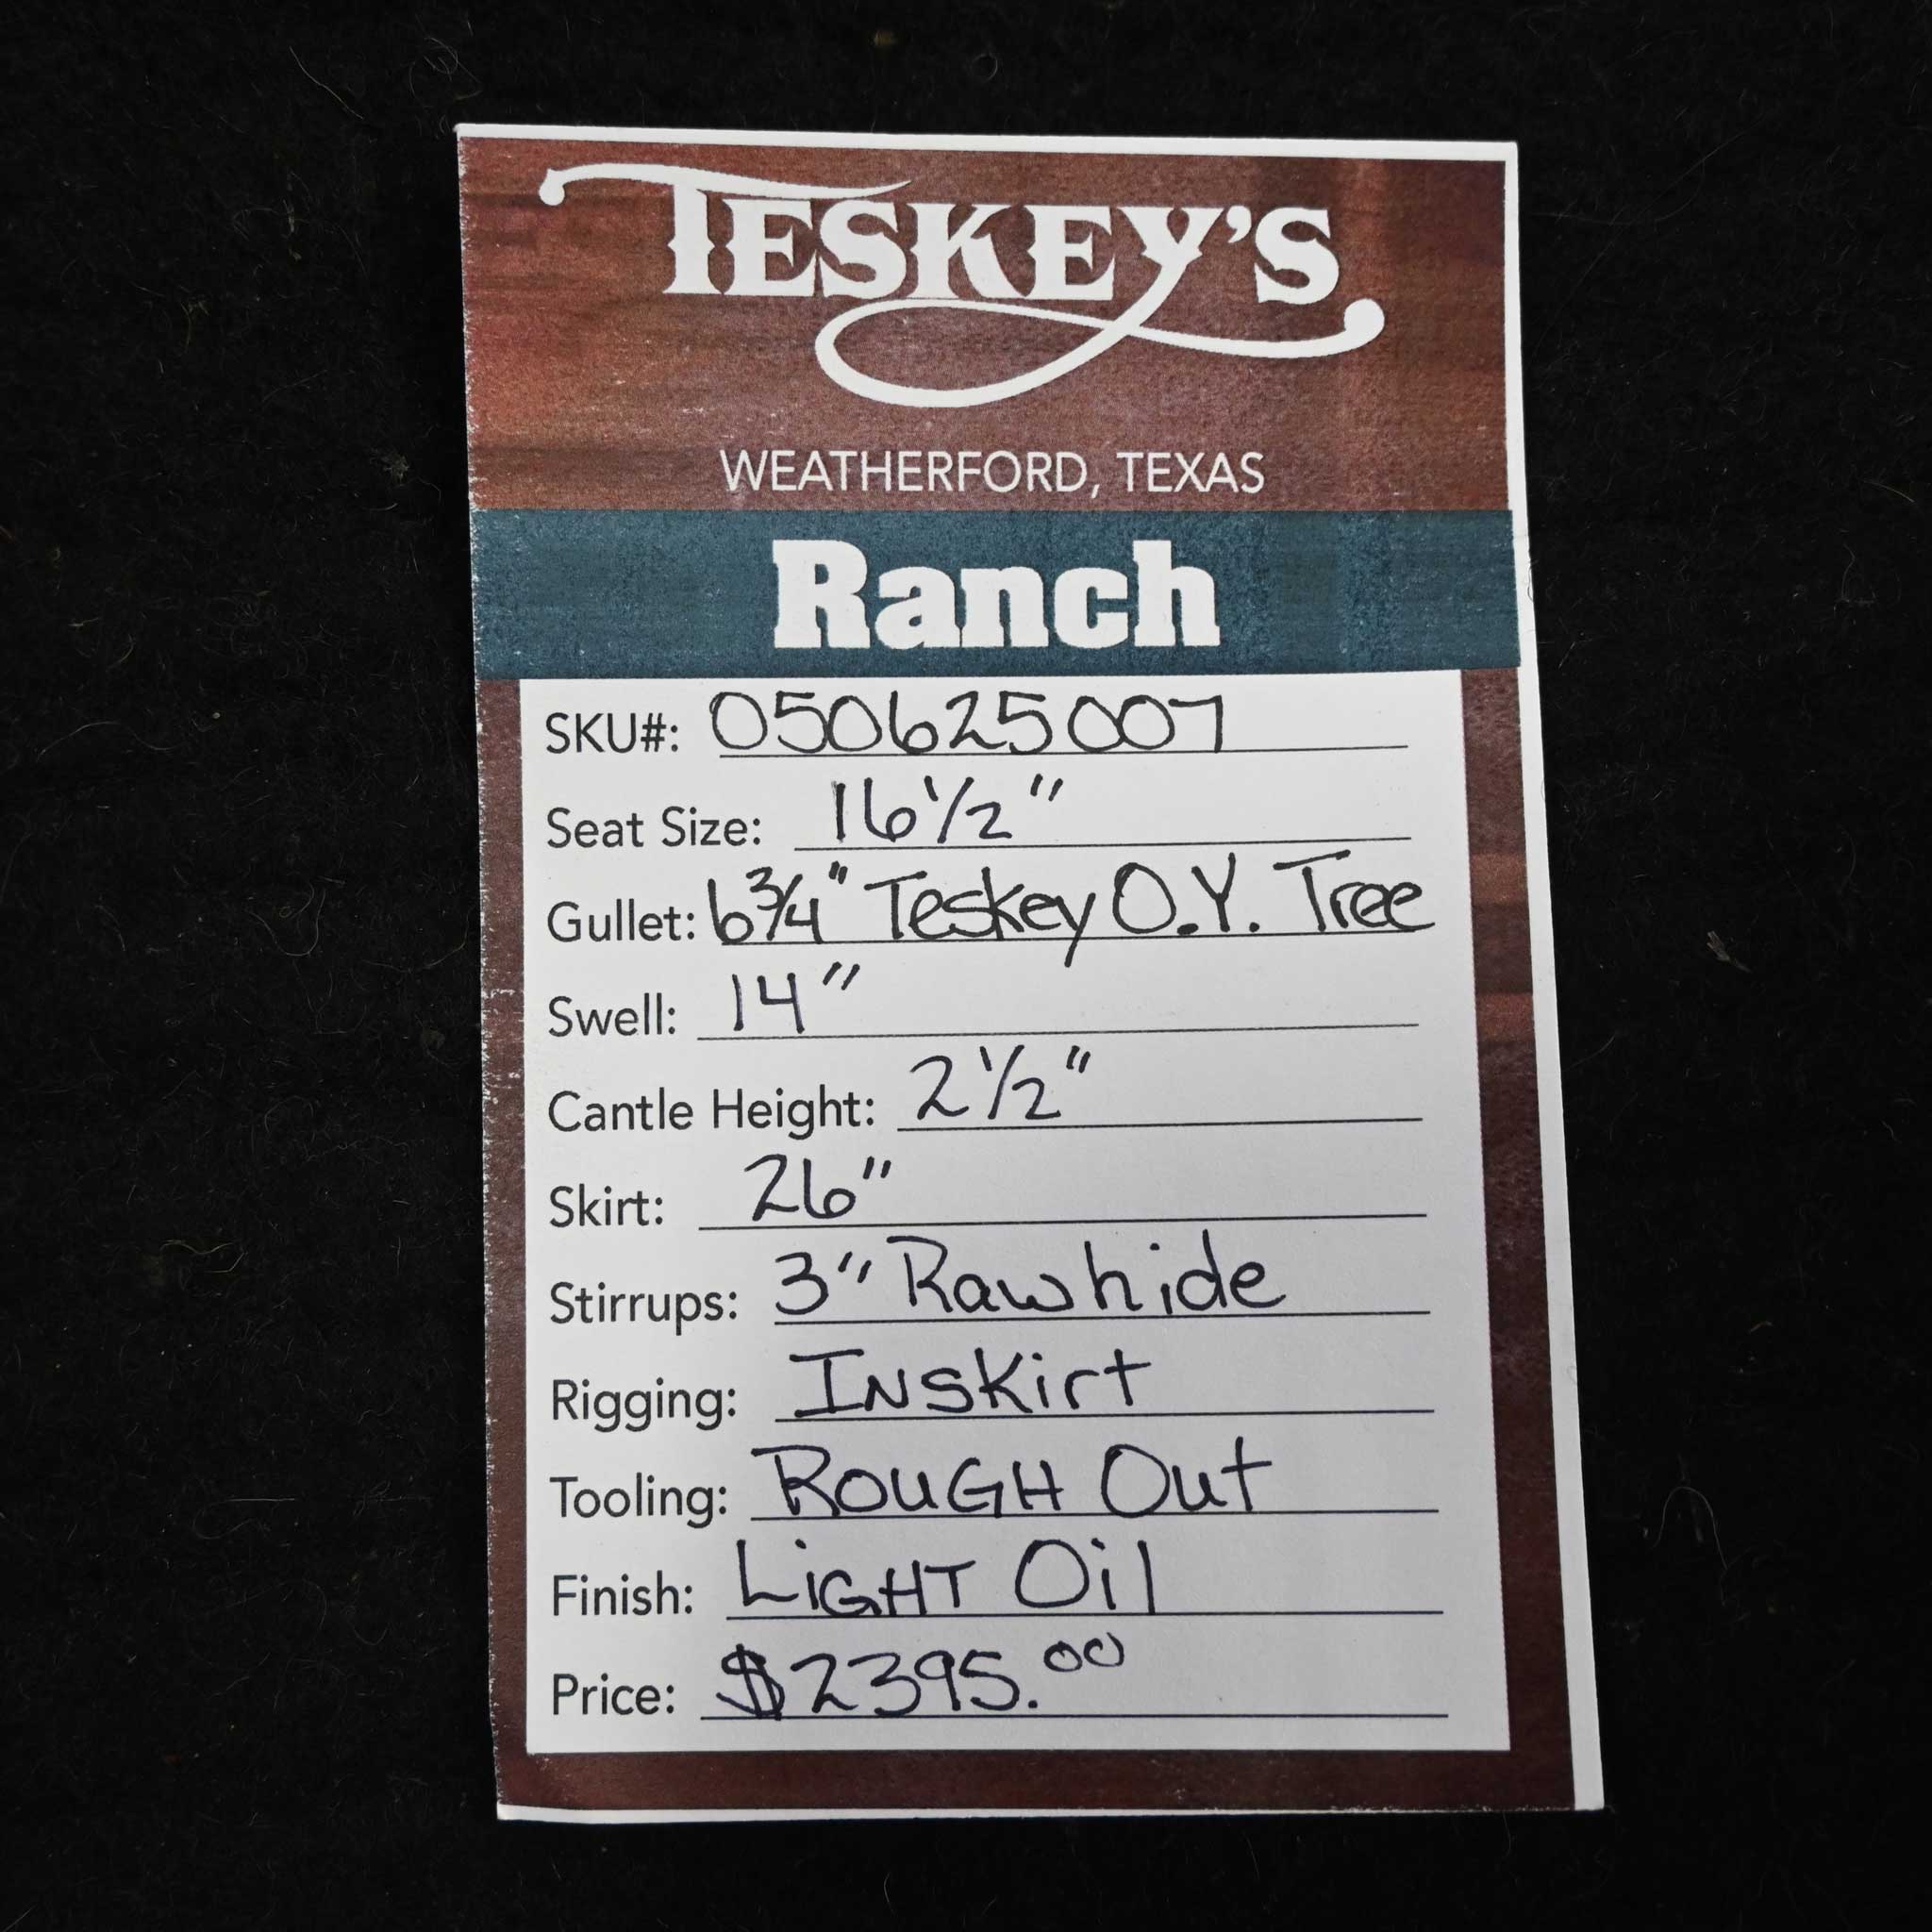 TESKEY'S
WEATHERFORD, TEXAS
Ranch
SKU#: 050625007
Seat Size: 16 1/2"
Gullet: 6 3/4" Teskey O.Y. Tree
Swell: 14"
Cantle Height: 2 1/2"
Skirt: 26"
Stirrups: 3" Rawhide
Rigging: INSKirt
Tooling: ROUGH Out
Finish: LiGHT Oil
Price: $2395.00